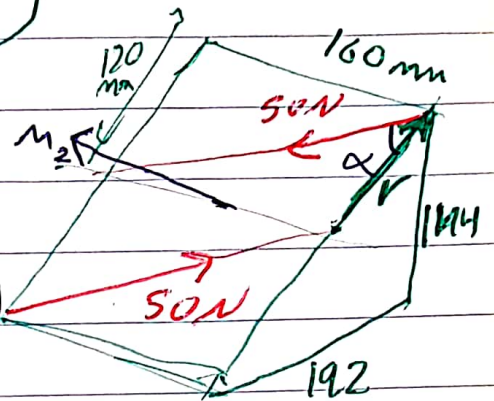 120
mm
160mm
50N
M2
α
r
144
50N
192